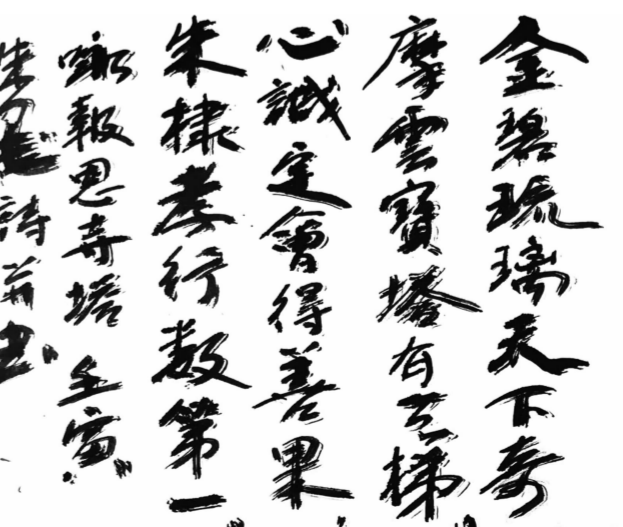 金碧琉璃天下奇
摩雲寶塔有云梯
心誠定會得善果
朱棣孝行数第一
咏報恩寺塔 壬寅
朱 詩并书